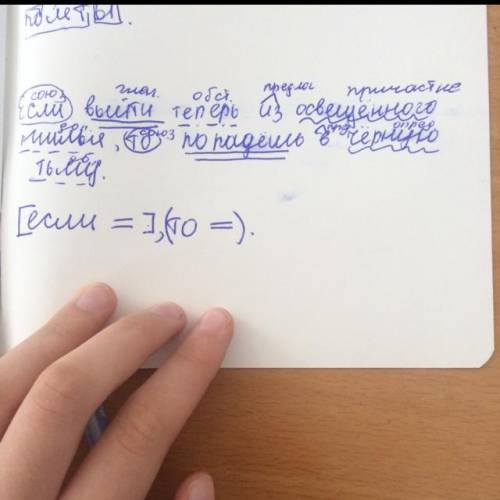 союз глаг. обст. предлог причастие
Если выйти теперь из освещённого
союз опред
жилья, то попадешь в чёрную
тьму.
[если = ], (то =).